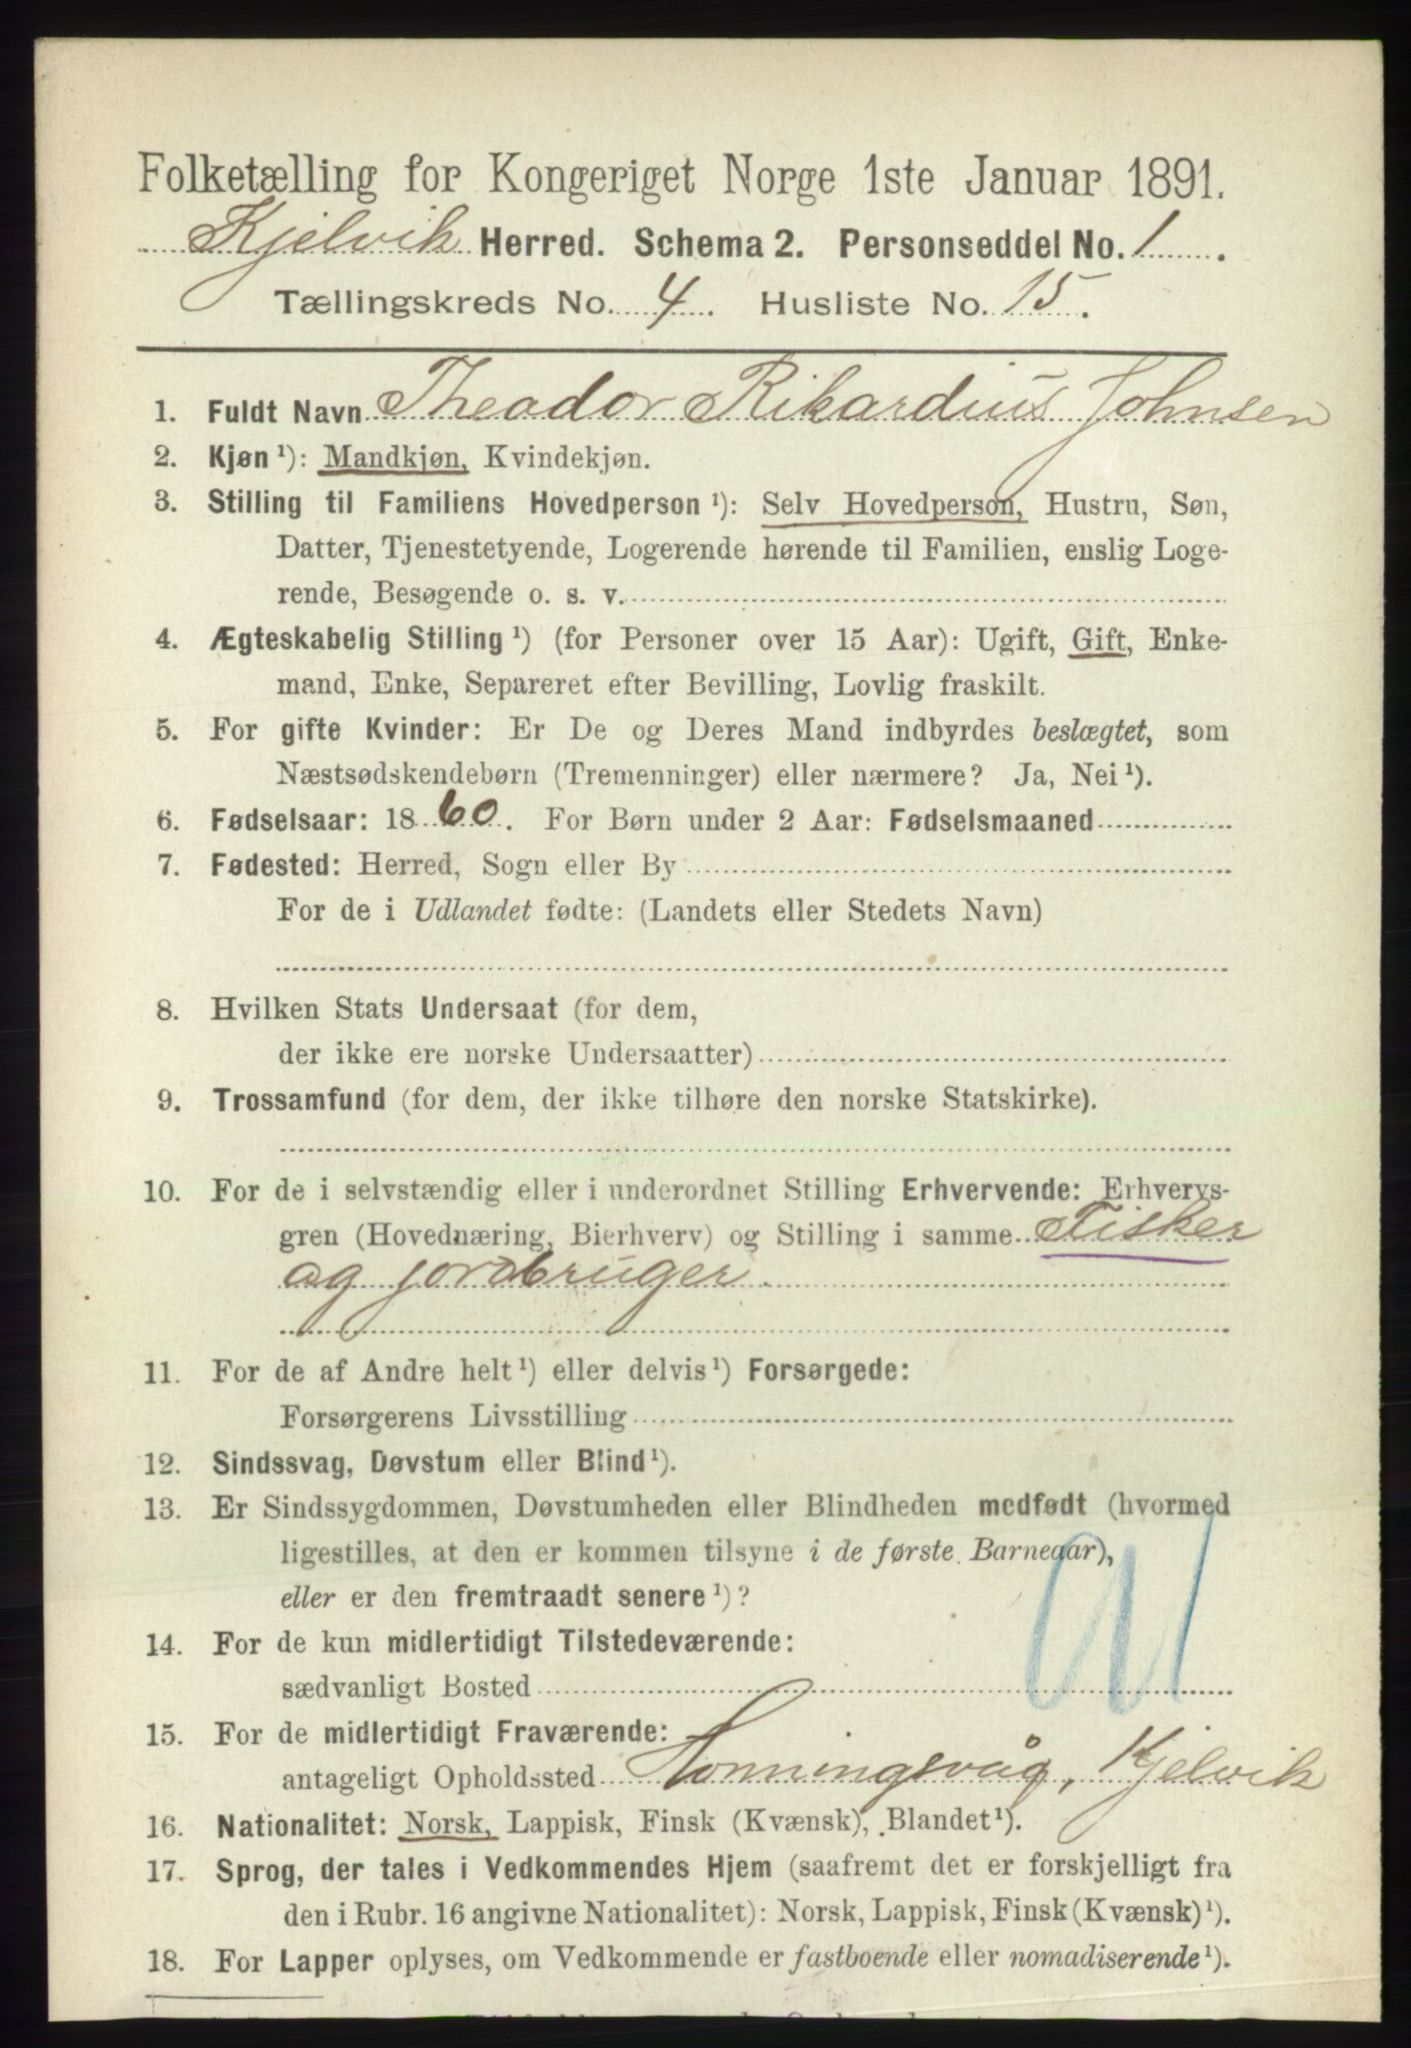 Folketælling for Kongeriget Norge 1ste Januar 1891.
Kjelvik Herred. Schema 2. Personseddel No. 1.
Tællingskreds No. 4. Husliste No. 15.
1. Fuldt Navn Theodor Rikardius Johnsen
2. Kjøn ¹): Mandkjøn, Kvindekjøn.
3. Stilling til Familiens Hovedperson ¹): Selv Hovedperson, Hustru, Søn,
Datter, Tjenestetyende, Logerende hørende til Familien, enslig Loge-
rende, Besøgende o. s. v.
4. Ægteskabelig Stilling ¹) (for Personer over 15 Aar): Ugift, Gift, Enke-
mand, Enke, Separeret efter Bevilling, Lovlig fraskilt.
5. For gifte Kvinder: Er De og Deres Mand indbyrdes beslægtet, som
Næstsødskendebørn (Tremenninger) eller nærmere? Ja, Nei ¹).
6. Fødselsaar: 1860. For Børn under 2 Aar: Fødselsmaaned
7. Fødested: Herred, Sogn eller By
For de i Udlandet fødte: (Landets eller Stedets Navn)
8. Hvilken Stats Undersaat (for dem,
der ikke ere norske Undersaatter)
9. Trossamfund (for dem, der ikke tilhøre den norske Statskirke).
10. For de i selvstændig eller i underordnet Stilling Erhvervende: Erhvervs-
gren (Hovednæring, Bierhverv) og Stilling i samme Fisker
og jordbruger.
11. For de af Andre helt ¹) eller delvis ¹) Forsørgede:
Forsørgerens Livsstilling
12. Sindssvag, Døvstum eller Blind ¹).
13. Er Sindssygdommen, Døvstumheden eller Blindheden medfødt (hvormed
ligestilles, at den er kommen tilsyne i de første Barneaar),
eller er den fremtraadt senere ¹)?
14. For de kun midlertidigt Tilstedeværende:
sædvanligt Bosted
15. For de midlertidigt Fraværende:
antageligt Opholdssted Honningsvåg, Kjelvik
16. Nationalitet: Norsk, Lappisk, Finsk (Kvænsk), Blandet ¹).
17. Sprog, der tales i Vedkommendes Hjem (saafremt det er forskjelligt fra
den i Rubr. 16 angivne Nationalitet): Norsk, Lappisk, Finsk (Kvænsk) ¹).
18. For Lapper oplyses, om Vedkommende er fastboende eller nomadiserende ¹).